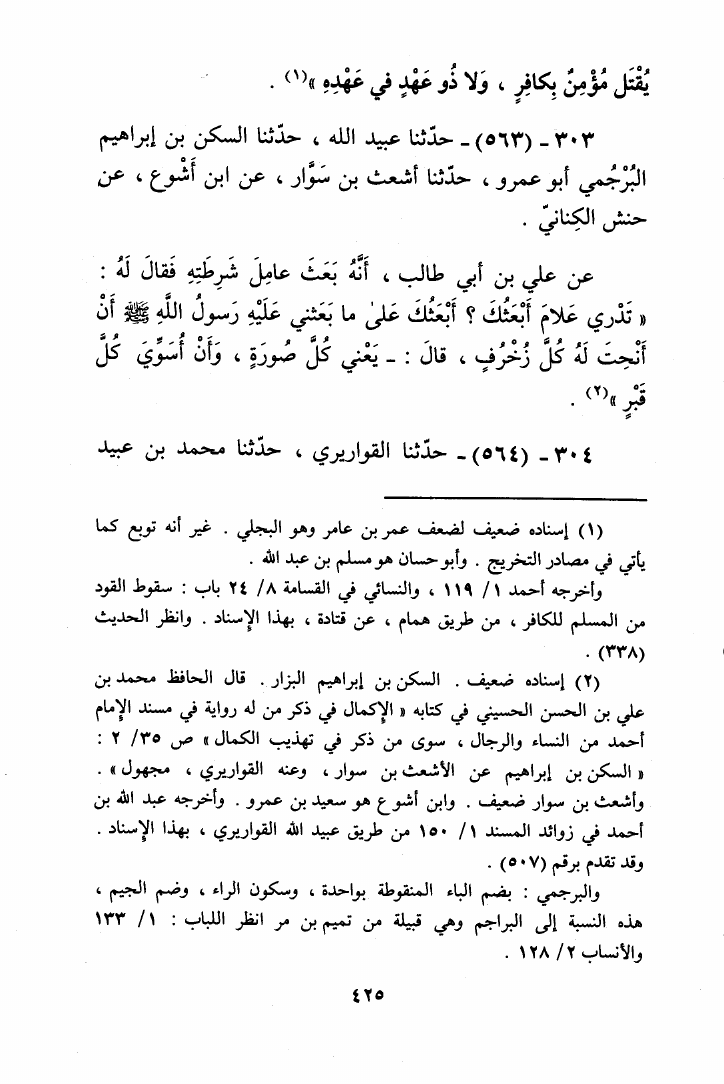 يُقْتَل مُؤْمِنٌ بِكافِرٍ ، وَلا ذُو عَهْدٍ في عَهْدِهِ »(١) .
٣٠٣ ـ (٥٦٣) ـ حدّثنا عبيد الله ، حدّثنا السكن بن إبراهيم
البُرْجُمي أبو عمرو ، حدّثنا أشعث بن سَوَّار ، عن ابن أَشْوع ، عن
حنش الكِنانيّ .
عن علي بن أبي طالب ، أَنَّهُ بَعَثَ عامِلَ شَرِطَتِهِ فَقالَ لَهُ :
« تَدْري عَلامَ أَبْعَثُكَ ؟ أَبْعَثُكَ عَلىٰ ما بَعَثني عَلَيْهِ رَسولُ اللَّهِ ﷺ أَنْ
أَنْحِتَ لَهُ كُلَّ زُخْرُفٍ ، قالَ : ـ يَعْني كُلَّ صُورَةٍ ، وَأَنْ أُسَوِّيَ كُلَّ
قَبْرٍ »(٢) .
٣٠٤ ـ (٥٦٤) ـ حدّثنا القواريري ، حدّثنا محمد بن عبيد
(١) إسناده ضعيف لضعف عمر بن عامر وهو البجلي . غير أنه توبع كما
يأتي في مصادر التخريج . وأبو حسان هو مسلم بن عبد الله .
وأخرجه أحمد ١/ ١١٩ ، والنسائي في القسامة ٨/ ٢٤ باب : سقوط القود
من المسلم للكافر ، من طريق همام ، عن قتادة ، بهذا الإسناد . وانظر الحديث
(٣٣٨) .
(٢) إسناده ضعيف . السكن بن إبراهيم البزار . قال الحافظ محمد بن
علي بن الحسن الحسيني في كتابه « الإكمال في ذكر من له رواية في مسند الإمام
أحمد من النساء والرجال ، سوى من ذكر في تهذيب الكمال » ص ٣٥/ ٢ :
« السكن بن إبراهيم عن الأشعث بن سوار ، وعنه القواريري ، مجهول » .
وأشعث بن سوار ضعيف . وابن أشوع هو سعيد بن عمرو . وأخرجه عبد الله بن
أحمد في زوائد المسند ١/ ١٥٠ من طريق عبيد الله القواريري ، بهذا الإسناد .
وقد تقدم برقم (٥٠٧) .
والبرجمي : بضم الباء المنقوطة بواحدة ، وسكون الراء ، وضم الجيم ،
هذه النسبة إلى البراجم وهي قبيلة من تميم بن مر انظر اللباب : ١/ ١٣٣
والأنساب ٢/ ١٢٨ .
٤٢٥